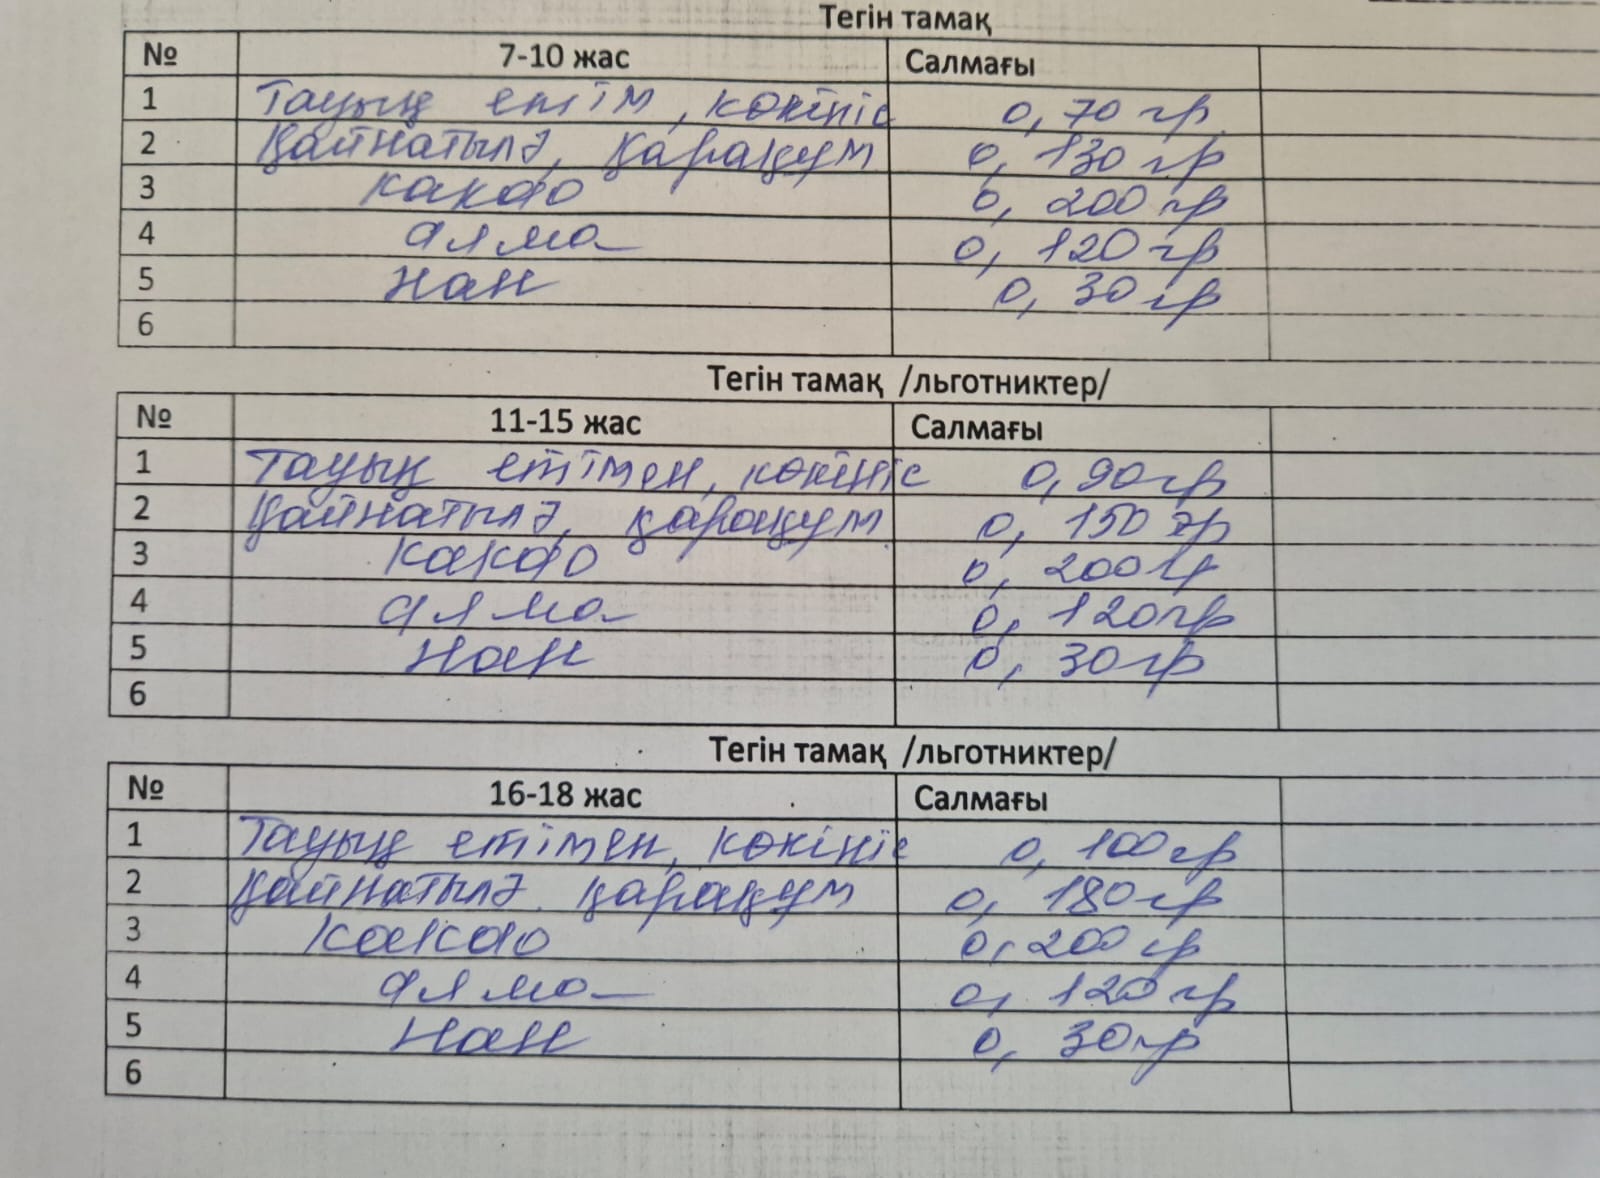 Тегін тамақ
№ 7-10 жас Салмағы
1 Тауық етім, көкініс 0,70 гр
2 Қайнатылә, қарақум 0, 130 гр
3 какао 0, 200 гр
4 алма 0, 120 гр
5 нан 0, 30 гр
6
Тегін тамақ /льготниктер/
№ 11-15 жас Салмағы
1 Тауық етімен, көкініс 0,90 гр
2 Қайнатылә, қарақум 0, 150 гр
3 какао 0, 200 гр
4 алма 0, 120 гр
5 нан 0, 30 гр
6
Тегін тамақ /льготниктер/
№ 16-18 жас Салмағы
1 Тауық етімен, көкініс 0, 100 гр
2 Қайнатылә, қарақум 0, 180 гр
3 какао 0, 200 гр
4 алма 0, 120 гр
5 нан 0, 30 гр
6